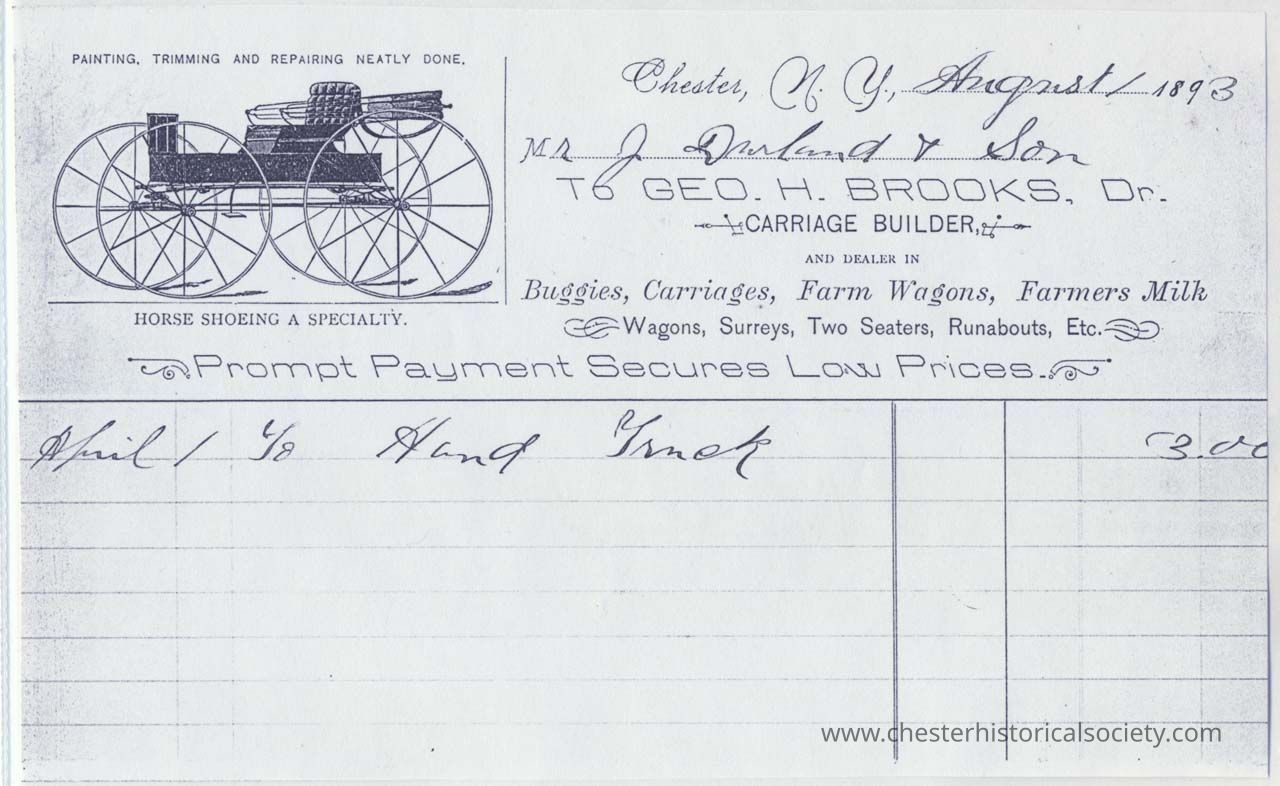 PAINTING, TRIMMING AND REPAIRING NEATLY DONE.
HORSE SHOEING A SPECIALTY.
Chester, N. Y., August 1 1893
Mr J Durland & Son
To GEO. H. BROOKS, Dr.
CARRIAGE BUILDER,
AND DEALER IN
Buggies, Carriages, Farm Wagons, Farmers Milk
Wagons, Surreys, Two Seaters, Runabouts, Etc.
Prompt Payment Secures Low Prices.
April 1 To Hand Truck 3.00
www.chesterhistoricalsociety.com